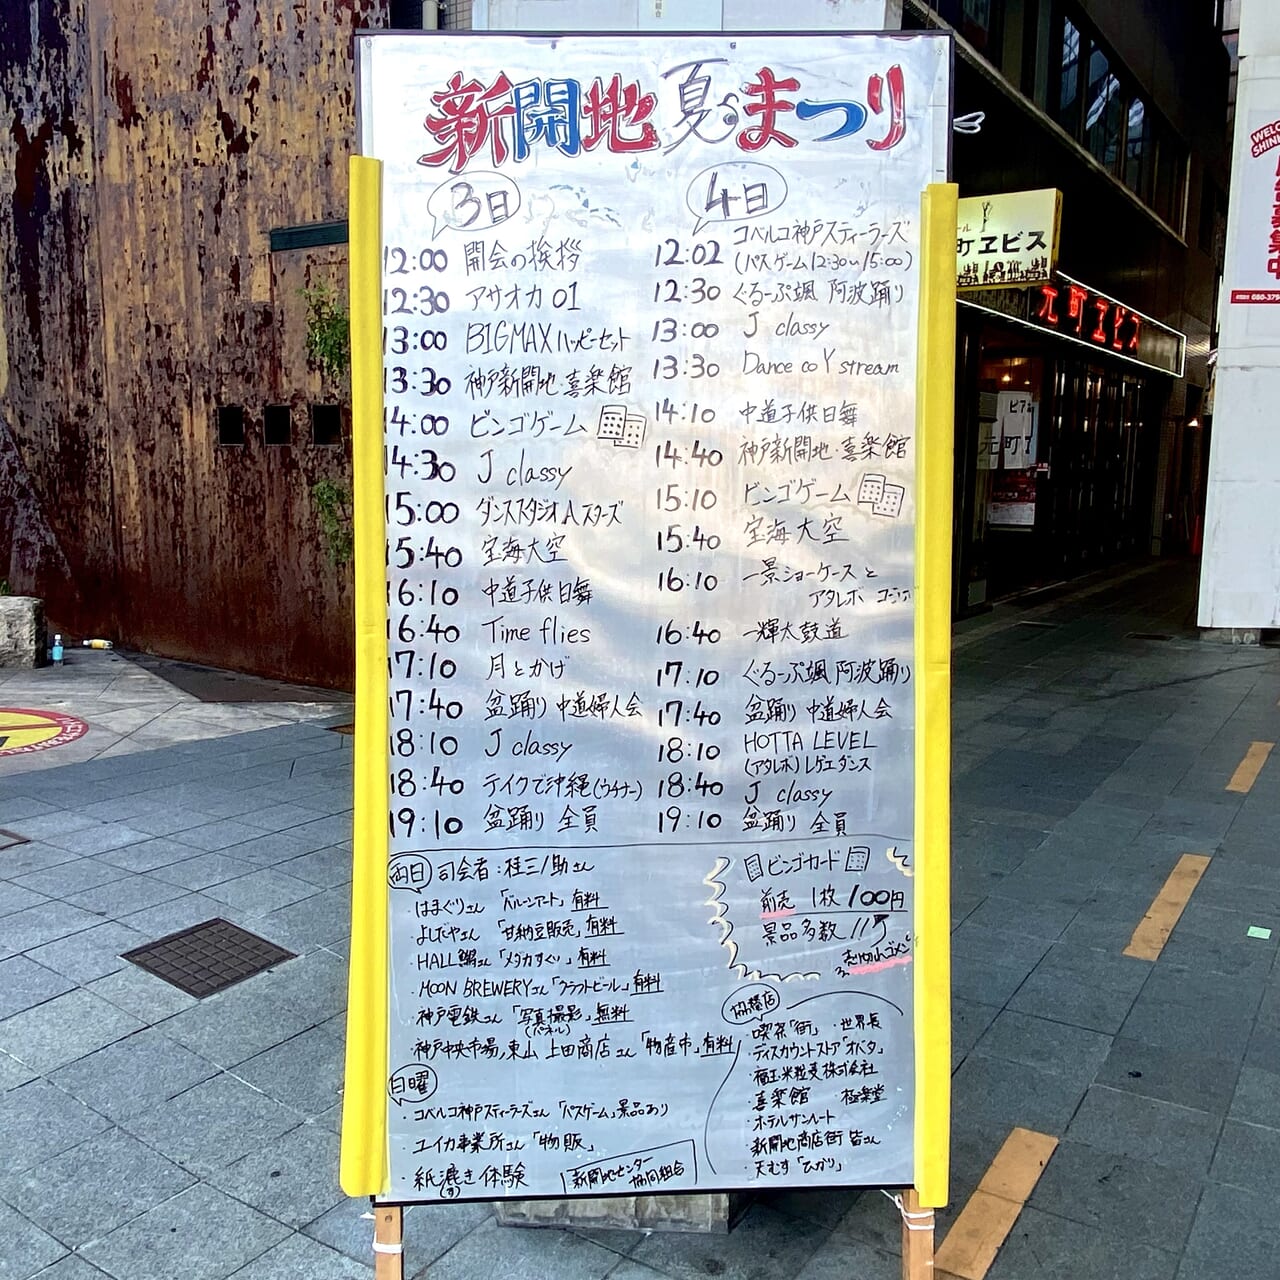 新開地夏まつり
3日
12:00 開会の挨拶
12:30 アサオカ01
13:00 BIGMAXハッピーセット
13:30 神戸新開地・喜楽館
14:00 ビンゴゲーム
14:30 J classy
15:00 ダンススタジオAスターズ
15:40 宝海大空
16:10 中道子供日舞
16:40 Time flies
17:10 月とかげ
17:40 盆踊り 中道婦人会
18:10 J classy
18:40 テイクで沖縄(ウチナー)
19:10 盆踊り 全員
4日
12:02 コベルコ神戸スティーラーズ
(パスゲーム12:30〜15:00)
12:30 ぐるーぷ颯 阿波踊り
13:00 J classy
13:30 Dance co Y stream
14:10 中道子供日舞
14:40 神戸新開地・喜楽館
15:10 ビンゴゲーム
15:40 宝海大空
16:10 一景ショーケースと
アタレボ コラボ
16:40 一輝太鼓道
17:10 ぐるーぷ颯 阿波踊り
17:40 盆踊り 中道婦人会
18:10 HOTTA LEVEL
(アタレボ)レゲエダンス
18:40 J classy
19:10 盆踊り 全員
両日 司会者:桂三ノ助さん
・はまぐりさん「バルーンアート」有料
・よしだやさん「甘納豆販売」有料
・HALL鯛さん「メダカすくい」有料
・MOON BREWERYさん「クラフトビール」有料
・神戸電鉄さん「写真撮影」無料
(パネル)
・神戸中央市場ノ東山 上田商店さん「物産市」有料
日曜
・コベルコ神戸スティーラーズさん「パスゲーム」景品あり
・ユイカ事業所さん「物販」
・紙漉き体験
(す)
新開地センター
協同組合
ビンゴカード
前売 1枚100円
景品多数!!
売り切れゴメン
協賛店
・喫茶「街」 ・世界長
・ディスカウントストア「オバタ」
・福玉米粒麦株式会社
・喜楽館 ・極楽堂
・ホテルサンルート
・新開地商店街 皆さん
・天むす「ひかり」
町エビス
元町エビス
元町
WELCO
SHIN